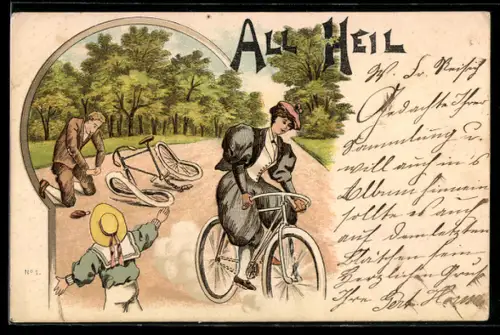 All Heil
W. Fr.
Gedachte Ihrer
Sammlung u.
will auch in's
Album hinein
sollte es auch
auf dem letzten
Plätzchen sein.
Herzlichen Gruss
Ihre
No 1.